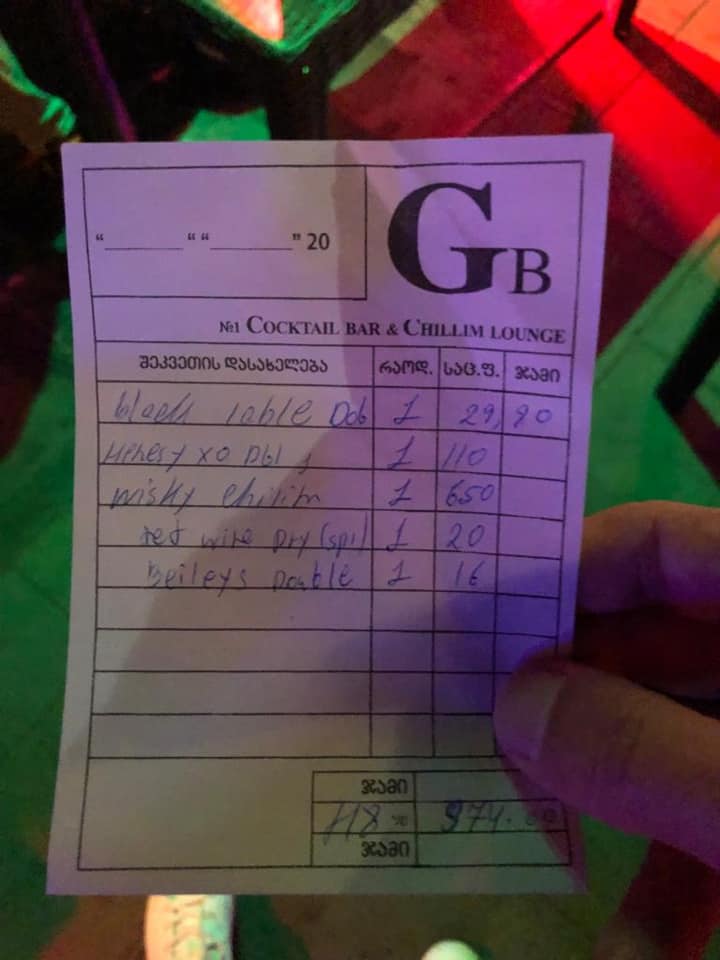 “ “ “ ” 20
GB
№1 COCKTAIL BAR & CHILLIM LOUNGE
შეკვეთის დასახელება რაოდ. საც.ფ. ჯამი
black lable Dob 1 29,90
Henesy XO Dbl 1 110
Wisky chilim 1 650
red wine Dry (spl) 1 20
Beileys Double 1 16
ჯამი
+18 % 974.
ჯამი